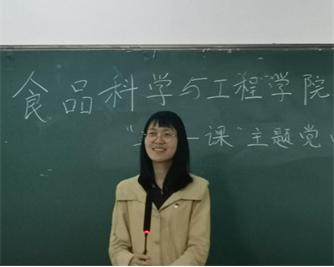 食品科学与工程学院
一课"主题党